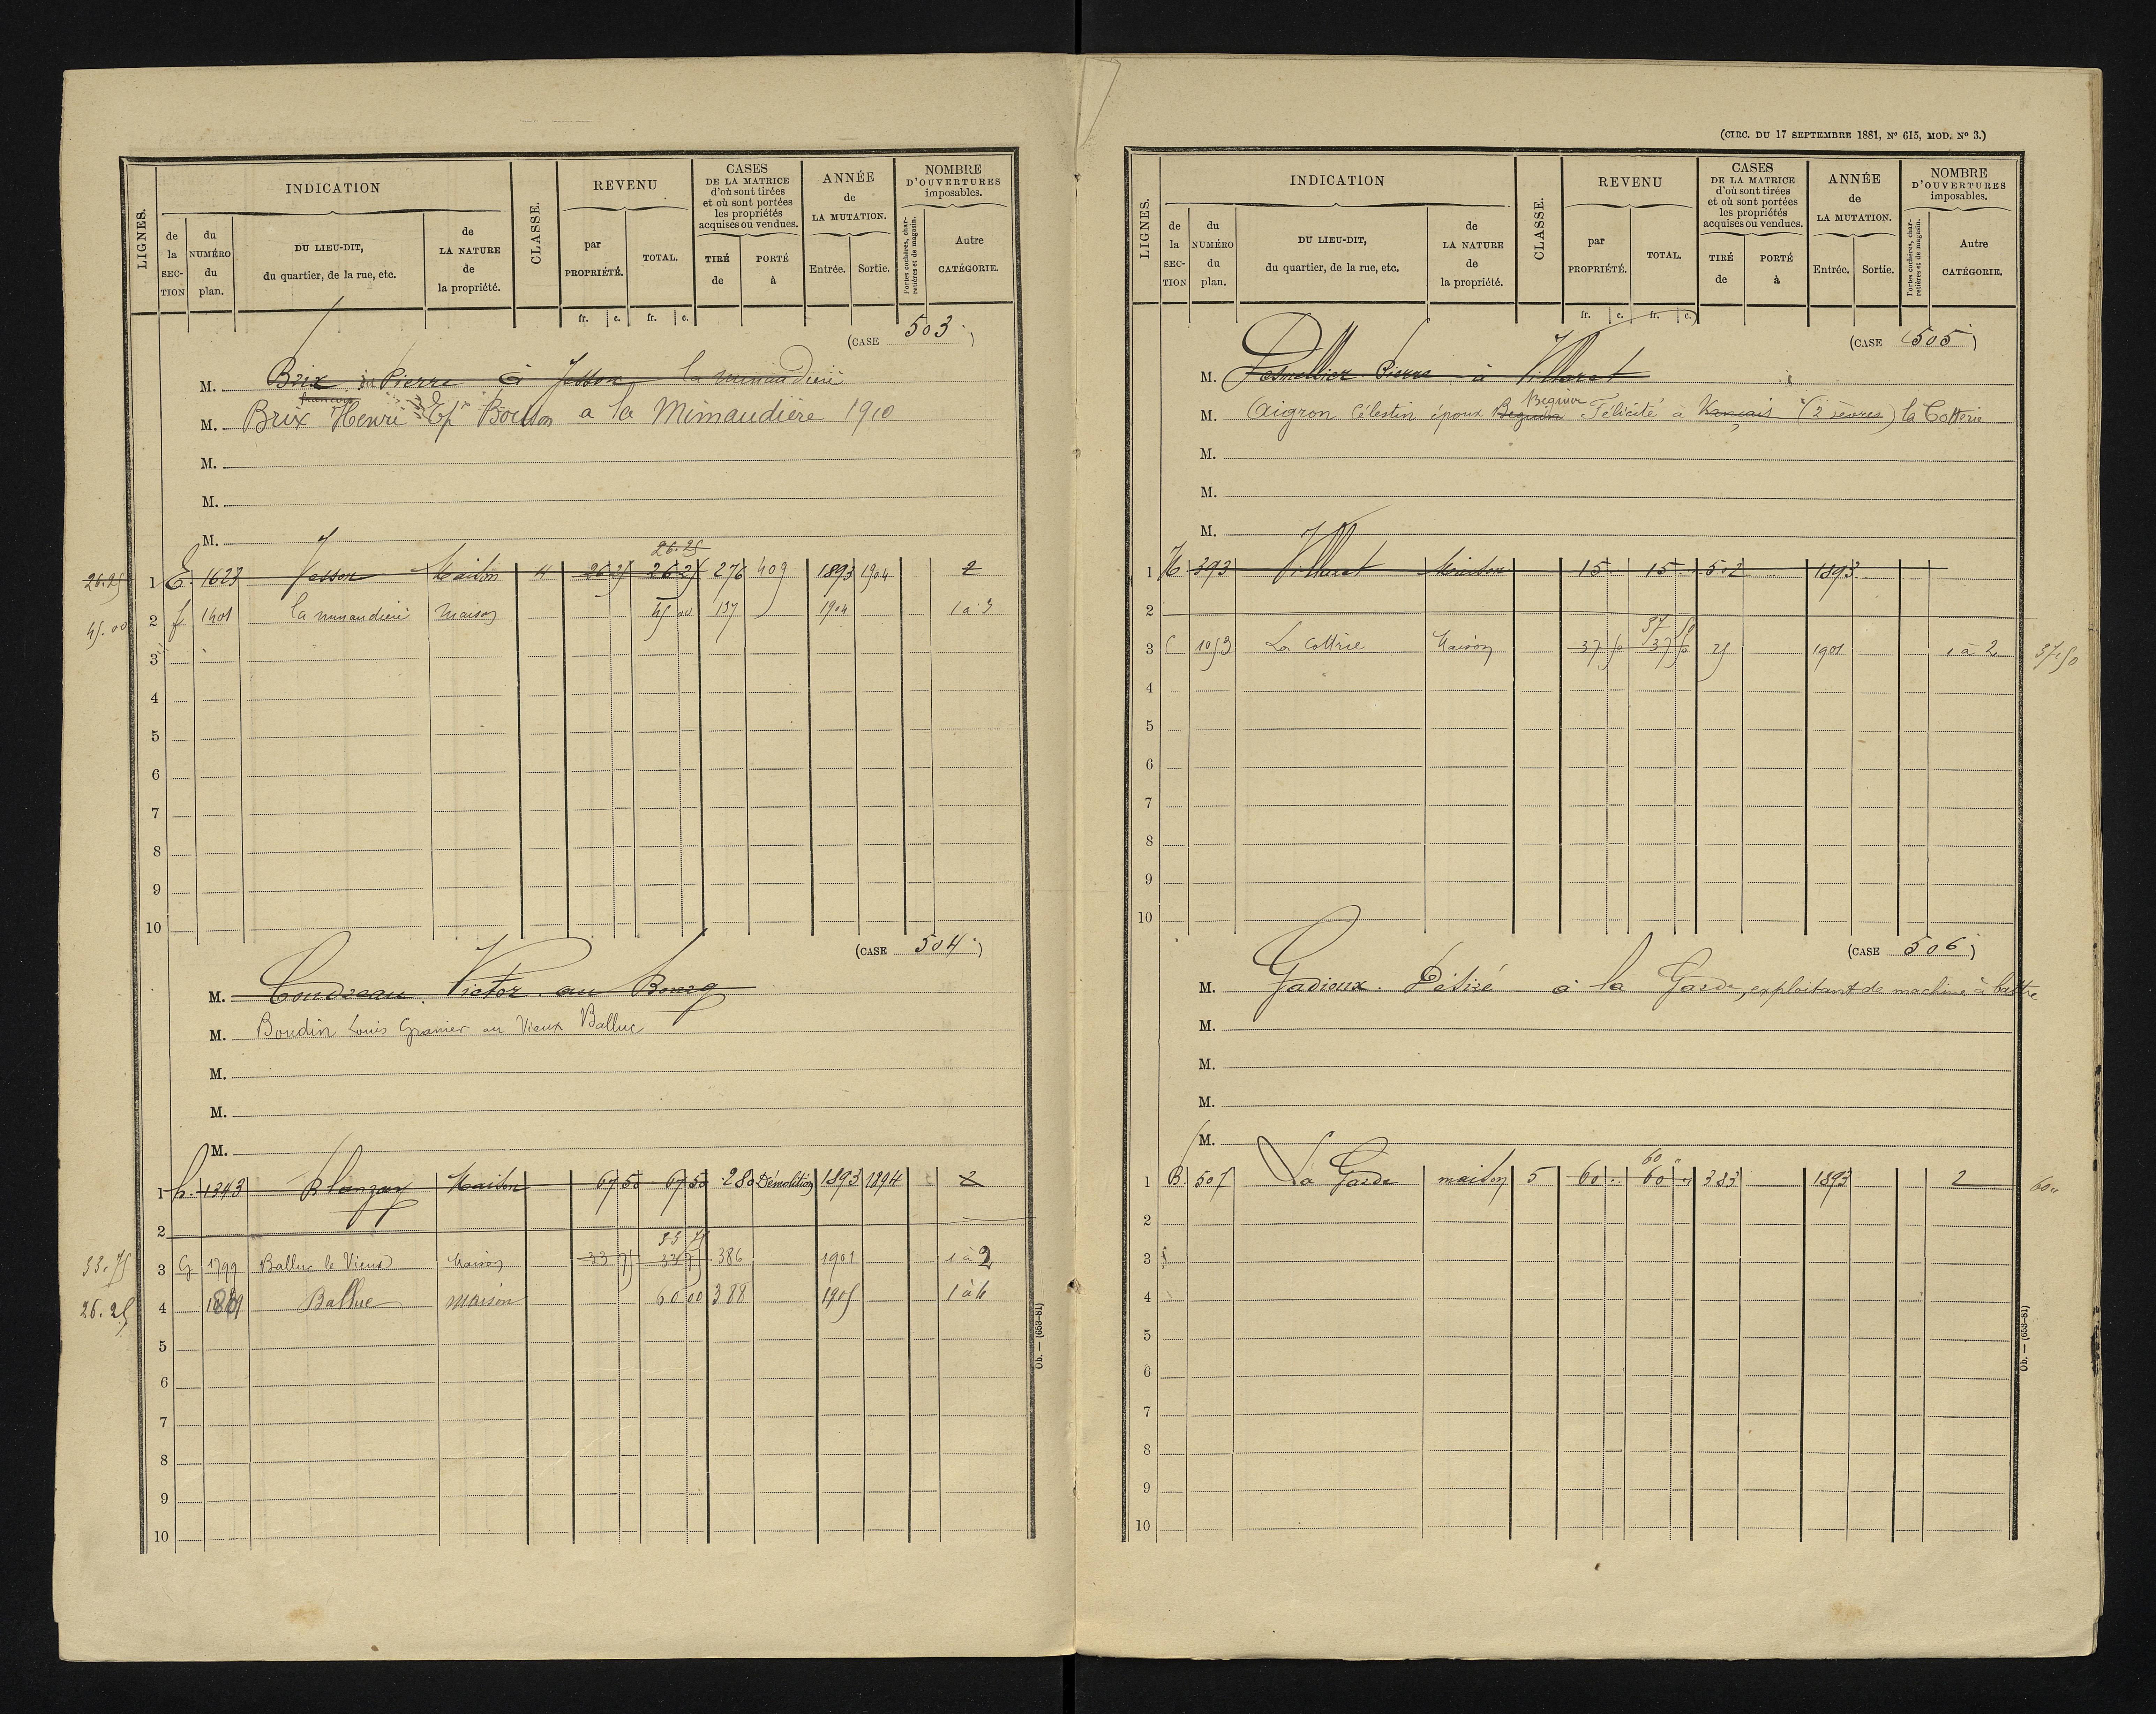 (CIRC. DU 17 SEPTEMBRE 1881, N° 615, MOD. N° 3.)
LIGNES. INDICATION CLASSE. REVENU CASES DE LA MATRICE d'où sont tirées et où sont portées les propriétés acquises ou vendues. ANNÉE de LA MUTATION. NOMBRE D'OUVERTURES imposables.
de la SECTION du NUMÉRO du plan. DU LIEU-DIT, du quartier, de la rue, etc. de LA NATURE de la propriété. par PROPRIÉTÉ. TOTAL. TIRÉ de PORTÉ à Entrée. Sortie. Portes cochères, charretières et de magasin. Autre CATÉGORIE.
fr. c. fr. c.
(CASE 503.)
M. Brix Pierre à Jesson la mimaudiere
francois
M. Brix Henri Ep Bouson a la Mimaudière 1910
M.
M.
M.
26.25
26.25 1 E. 1623 Jesson Maison 4 26 25 26 25 276 409 1893 1904 2
45.00 2 f 1401 la mimaudiere maison 45 00 137 1904 1 a 3
3
4
5
6
7
8
9
10
(CASE 504.)
M. Coudreau Victor au Bourg
M. Boudin Louis Granier au Vieux Balluc
M.
M.
M.
1 h. 1343 Blanzay Maison 67 50 67 50 280 Démolition 1893 1894 2
2
33 75
33.75 3 G 1799 Balluc le Vieux Maison 33 75 33 75 386 1901 1 à 2
26.25 4 Balluc maison 60 00 388 1905 1 à 4
5
6
7
8
9
10
Ob. — (653-81)
LIGNES. INDICATION CLASSE. REVENU CASES DE LA MATRICE d'où sont tirées et où sont portées les propriétés acquises ou vendues. ANNÉE de LA MUTATION. NOMBRE D'OUVERTURES imposables.
de la SECTION du NUMÉRO du plan. DU LIEU-DIT, du quartier, de la rue, etc. de LA NATURE de la propriété. par PROPRIÉTÉ. TOTAL. TIRÉ de PORTÉ à Entrée. Sortie. Portes cochères, charretières et de magasin. Autre CATÉGORIE.
fr. c. fr. c.
(CASE 505.)
M. Desmellier Pierre à Villaret
Beguier
M. Aigron Célestin époux Beguin Félicité à Vançais (2 sèvres) la Cotterie
M.
M.
M.
1 H 393 Villaret Maison 15 15 502 1893
2
37 50
3 C 1053 La Cottrie Maison 37 50 37 50 25 1901 1 à 2 37,50
4
5
6
7
8
9
10
(CASE 506.)
M. Gadioux. Désiré à la Garde, exploitant de machine à battre
M.
M.
M.
M.
60 "
1 B. 507 La Garde maison 5 60 .. 60 .. 383 1893 2 60"
2
3
4
5
6
7
8
9
10
Ob. — (653-81)